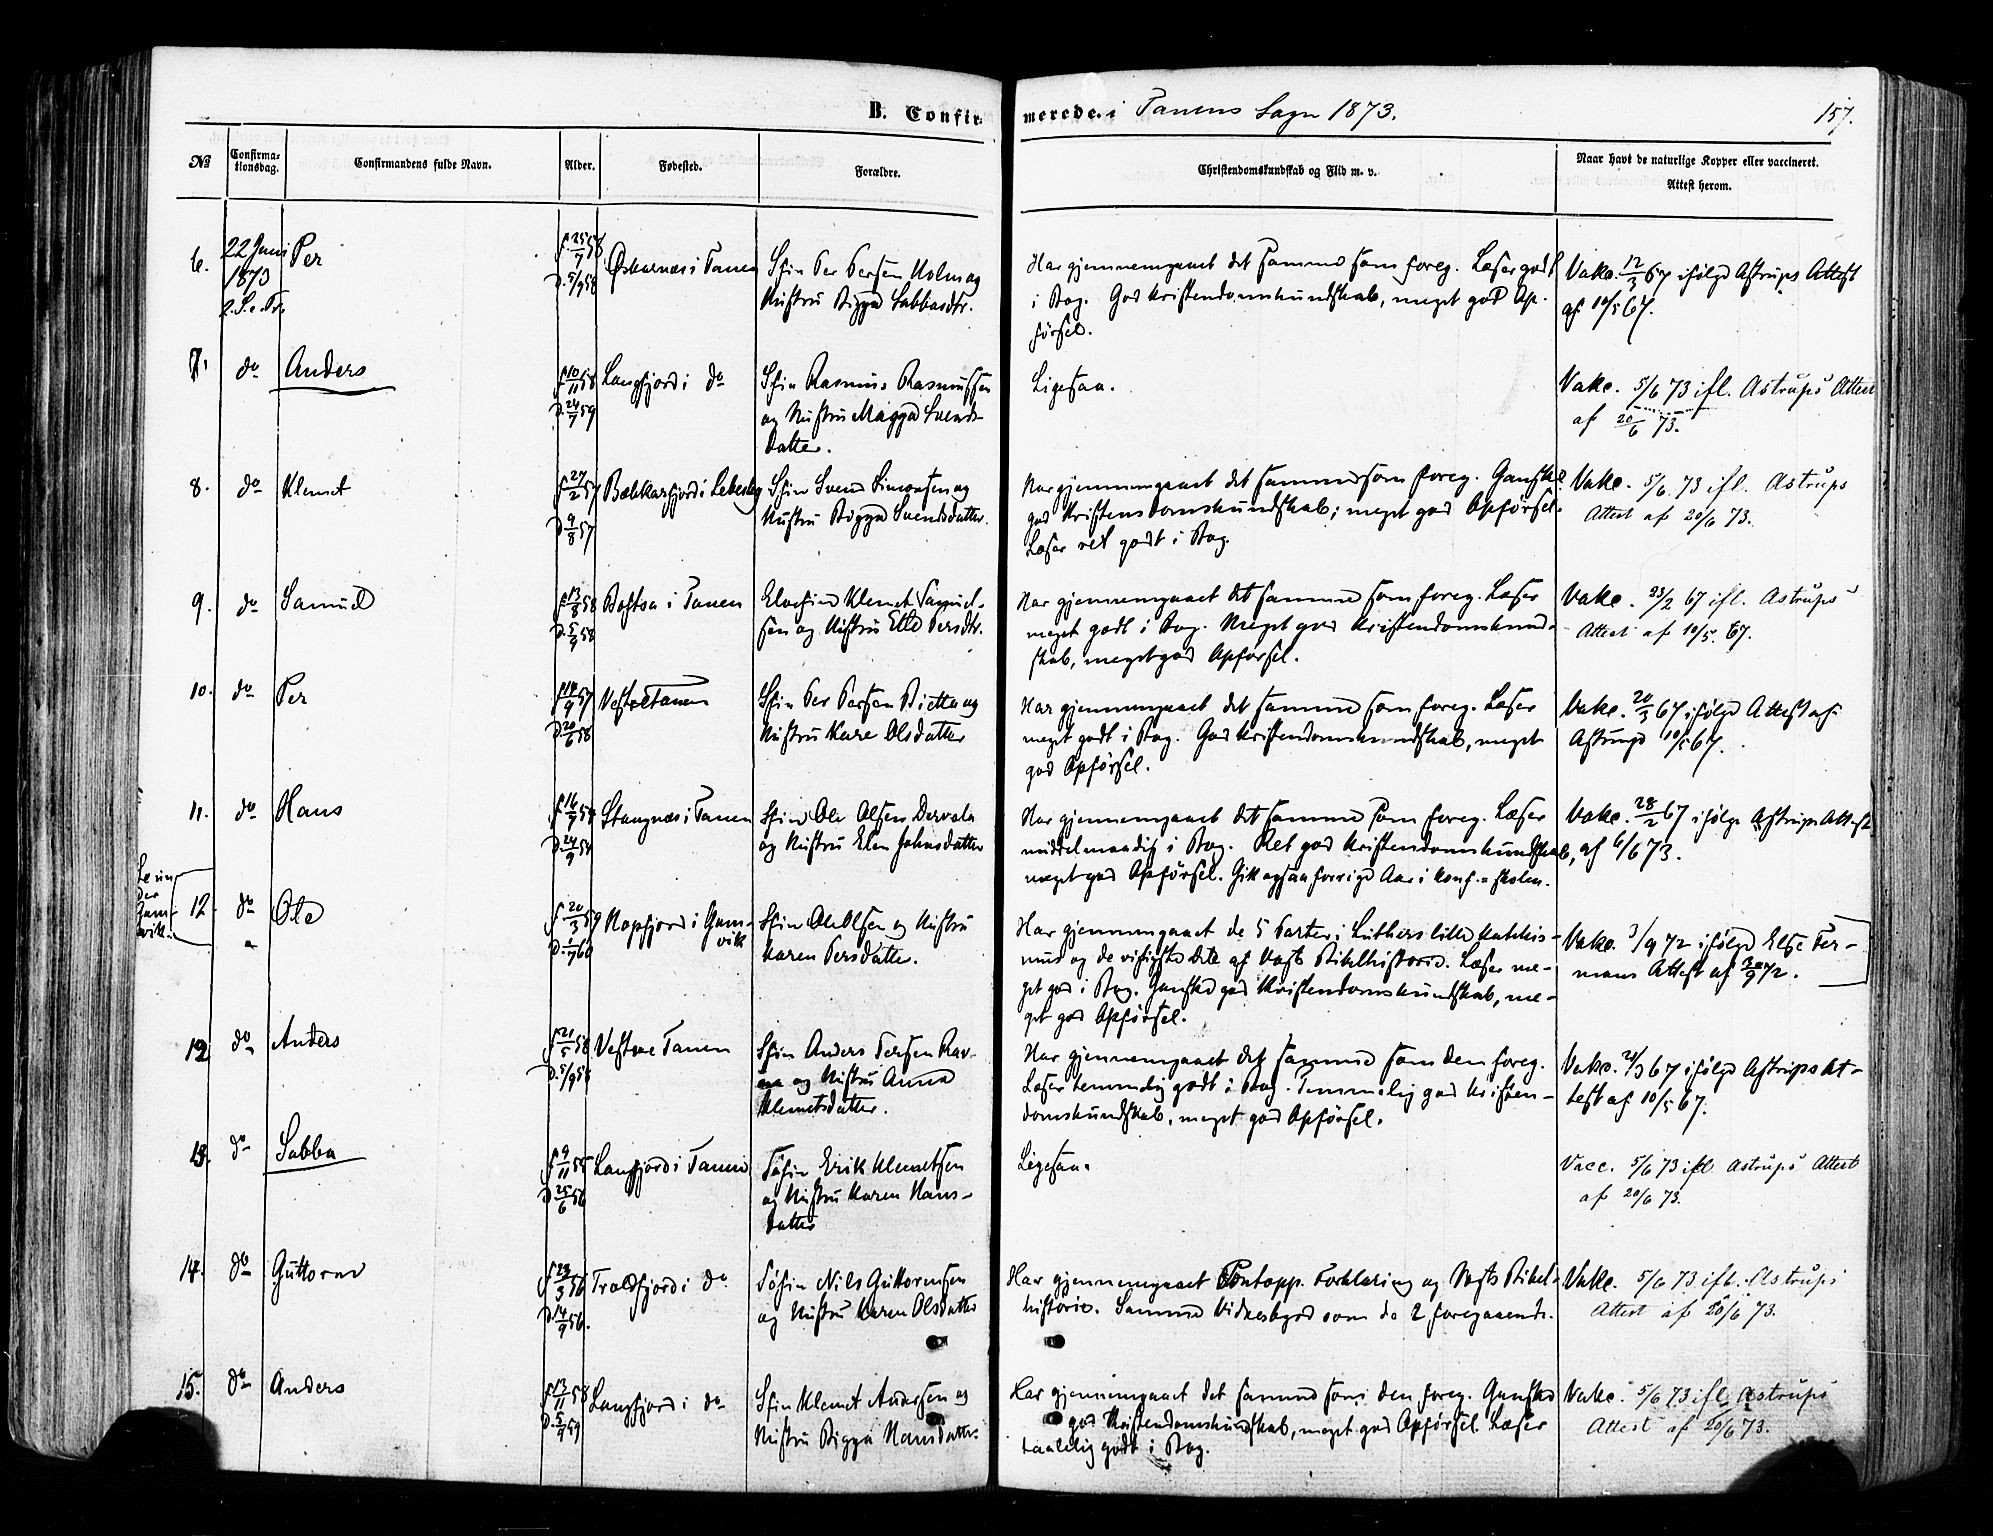 B. Confirmerede i Tanens Sogn 1873.
157.
№ Confirmationsdag. Confirmandens fulde Navn. Alder. Fødested. Forældre. Christendomskundskab og Flid m. v. Naar havt de naturlige Kopper eller vaccineret. Attest herom.
6. 22 Juni Per f. 25/7 58 i Tanen Sfin Per Persen Holm og Har gjennemgaaet det samme som foreg. Læser godt Vakc. 12/3 67 ifølge Astrups Attest
1873 d. 5/9 58 Hustru Bigga Sabbasdtr. i Bog. God Kristendomskundskab, meget god Op- af 10/5 67.
2. S. e. Tr. førsel.
7. do Anders f 10/11 58 Langfjord i do Sfin Rasmus Rasmussen Ligesaa. Vakc. 5/6 73 ifl. Astrups Attest
d. 24/7 59 og Hustru Magga Svends- af 20/6 73.
datter.
8. do Klemet f 27/2 57 i Lebesby Sfin Svend Simonsen og Har gjennemgaaet det samme som foreg. Ganske Vakc. 5/6 73 ifl. Astrups
d 9/8 57 Hustru Bigga Svendsdatter. god Kristendomskundskab; meget god Opførsel. Attest af 20/6 73.
Læser ret godt i Bog.
9. do Samuel f 13/8 58 i Tanen Elvefin Klemet Samuel- Har gjennemgaaet det samme som foreg. Læser Vakc. 23/2 67 ifl. Astrups
d. 5/9 58 sen og Hustru Elle Persdtr. meget godt i Bog. Meget god Kristendomskund- Attest af 10/5. 67.
skab, meget god Opførsel.
10. do Per Vestretanen Sfin Per Persen og Har gjennemgaaet det samme som foreg. Læser Vakc. 20/3 67 ifølge Attest af
d. 20/6 58 Hustru Kare Olsdatter meget godt i Bog. God Kristendomskundskab, meget Astrup 10/5 67.
god Opførsel.
11. do Hans Stangnæs i Tanen Sfin Ole Olsen Har gjennemgaaet det samme som foreg. Læser Vakc. 28/2 67 ifølge Astrups Attest
og Hustru Elen Johnsdatter middelmaadig i Bog. Ret god Kristendomskundskab, af 6/6 73.
meget god Opførsel. Gik ogsaa forrige Aar i Konf.-skolen.
Se un-
der
Gam-
vik.
12. do Ole f 20/3 59 Hopfjord i Gam- Sfin Ole Olsen og Hustru Har gjennemgaaet de 5 Parter i Luthers lille Katekis- Vakc. 3/9 72 ifølge Else Fer-
d. 1/7 60 vik Karen Persdatter. mus og de vigtigste Dele af Vogts Bibelhistorie. Læser me- mans Attest af
get god i Bog. Ganske god Kristendomskundskab, me-
get god Opførsel.
12 do Anders f 21/5 58 Vestre Tanen Sfin Anders Persen Har gjennemgaaet det samme som den foreg. Vakc. 20/3 67 ifølge Astrups At-
d. 5/9 58 og Hustru Anna Læser temmelig godt i Bog. Temmelig god Kristen- test af 10/5 67.
Klemetsdatter. domskundskab, meget god Opførsel.
13. do Sabba f 9/11 55 Langfjord i Tanen Søfin Erik Klemetsen Ligesaa. Vacc. 5/6 73 ifl Astrups Attest
d 25/6 56 og Hustru Karen Hans- af 20/6 73.
datter
14. do Guttorm f 23/3 56 Troldfjord i do Søfin Nils Guttormsen Har gjennemgaaet Pontopp. Forklaring og Vogts Bibel- Vakc. 5/6 73 ifl. Astrups
d. 14/9 56. og Hustru Karen Olsdatter historie. Samme Vidnesbyrd som de 2 foregaaende. Attest af 20/6 73.
15. do Anders f 13/11 58 Langfjord i do Sfin Klemet Andersen og Har gjennemgaaet det samme som den foreg. Ganske Vakc. 5/6 73 ifl. Astrups
d. 5/9 59 Hustru Bigga Hansdatter. god Kristendomskundskab, meget god Opførsel. Læser Attest af 20/6 73.
taalelig godt i Bog.